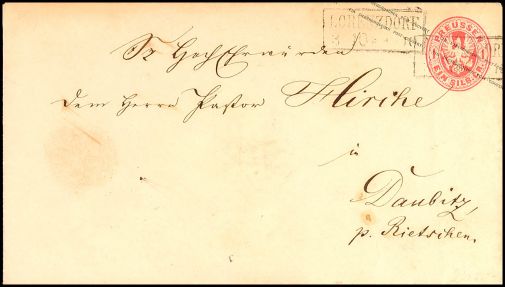 LORENZDORF
PREUSSEN
EIN SILBERGR.
Sr Hochehrwürden
dem Herrn Pastor Hirche
in
Daubitz,
p. Rietschen.